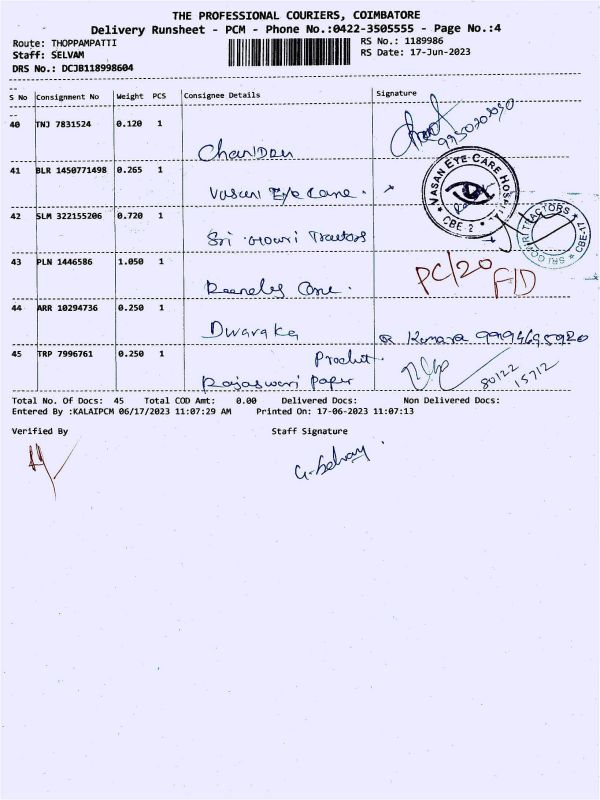 THE PROFESSIONAL COURIERS, COIMBATORE
Delivery Runsheet - PCM - Phone No.:0422-3505555 - Page No.:4
Route: THOPPAMPATTI
RS No.: 1189986
Staff: SELVAM
RS Date: 17-Jun-2023
DRS No.: DCJB118998604
S No Consignment No Weight PCS Consignee Details Signature
40 TNJ 7831524 0.120 1
Chandon
41 BLR 1450771498 0.265 1
Vasan Eye Care.
VASAN EYE-CARE HOSPITAL
CBE-2
42 SLM 322155206 0.720 1
Sri Gowri Tractors
SRI GOWRI TRACTORS
CBE-17
43 PLN 1446586 1.050 1
PC/20
F/D
44 ARR 10294736 0.250 1
Dwaraka
R Kumara 9994695920
45 TRP 7996761 0.250 1
Rajaswari Paper
80122
15712
Total No. Of Docs: 45 Total COD Amt: 0.00 Delivered Docs: Non Delivered Docs:
Entered By :KALAIPCM 06/17/2023 11:07:29 AM Printed On: 17-06-2023 11:07:13
Verified By Staff Signature
G. Selvam